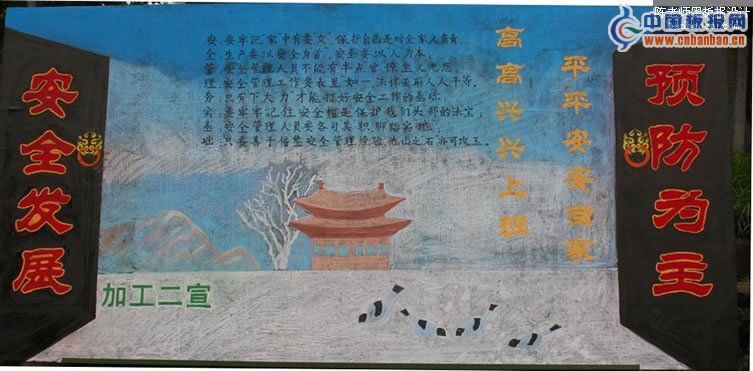 陈老师黑板报设计
中国板报网
www.cnbanbao.cn
安全发展
安:要牢记,家中有妻女,保护自己是对全家人负责
全:生产要以安全为首,安全要以人为本。
管:安全管理人员不能有半点官僚主义思想。
理:安全管理工作要表里如一,法律面前人人平等。
务:只有下大力才能打好安全工作的基础。
实:要牢牢记住安全帽是保护我们头部的法宝。
基:安全管理人员要各司其职,脚踏实地。
础:只要善于借鉴安全管理经验,他山之石亦可攻玉。
高高兴兴上班
平平安安回家
预防为主
加工二宣